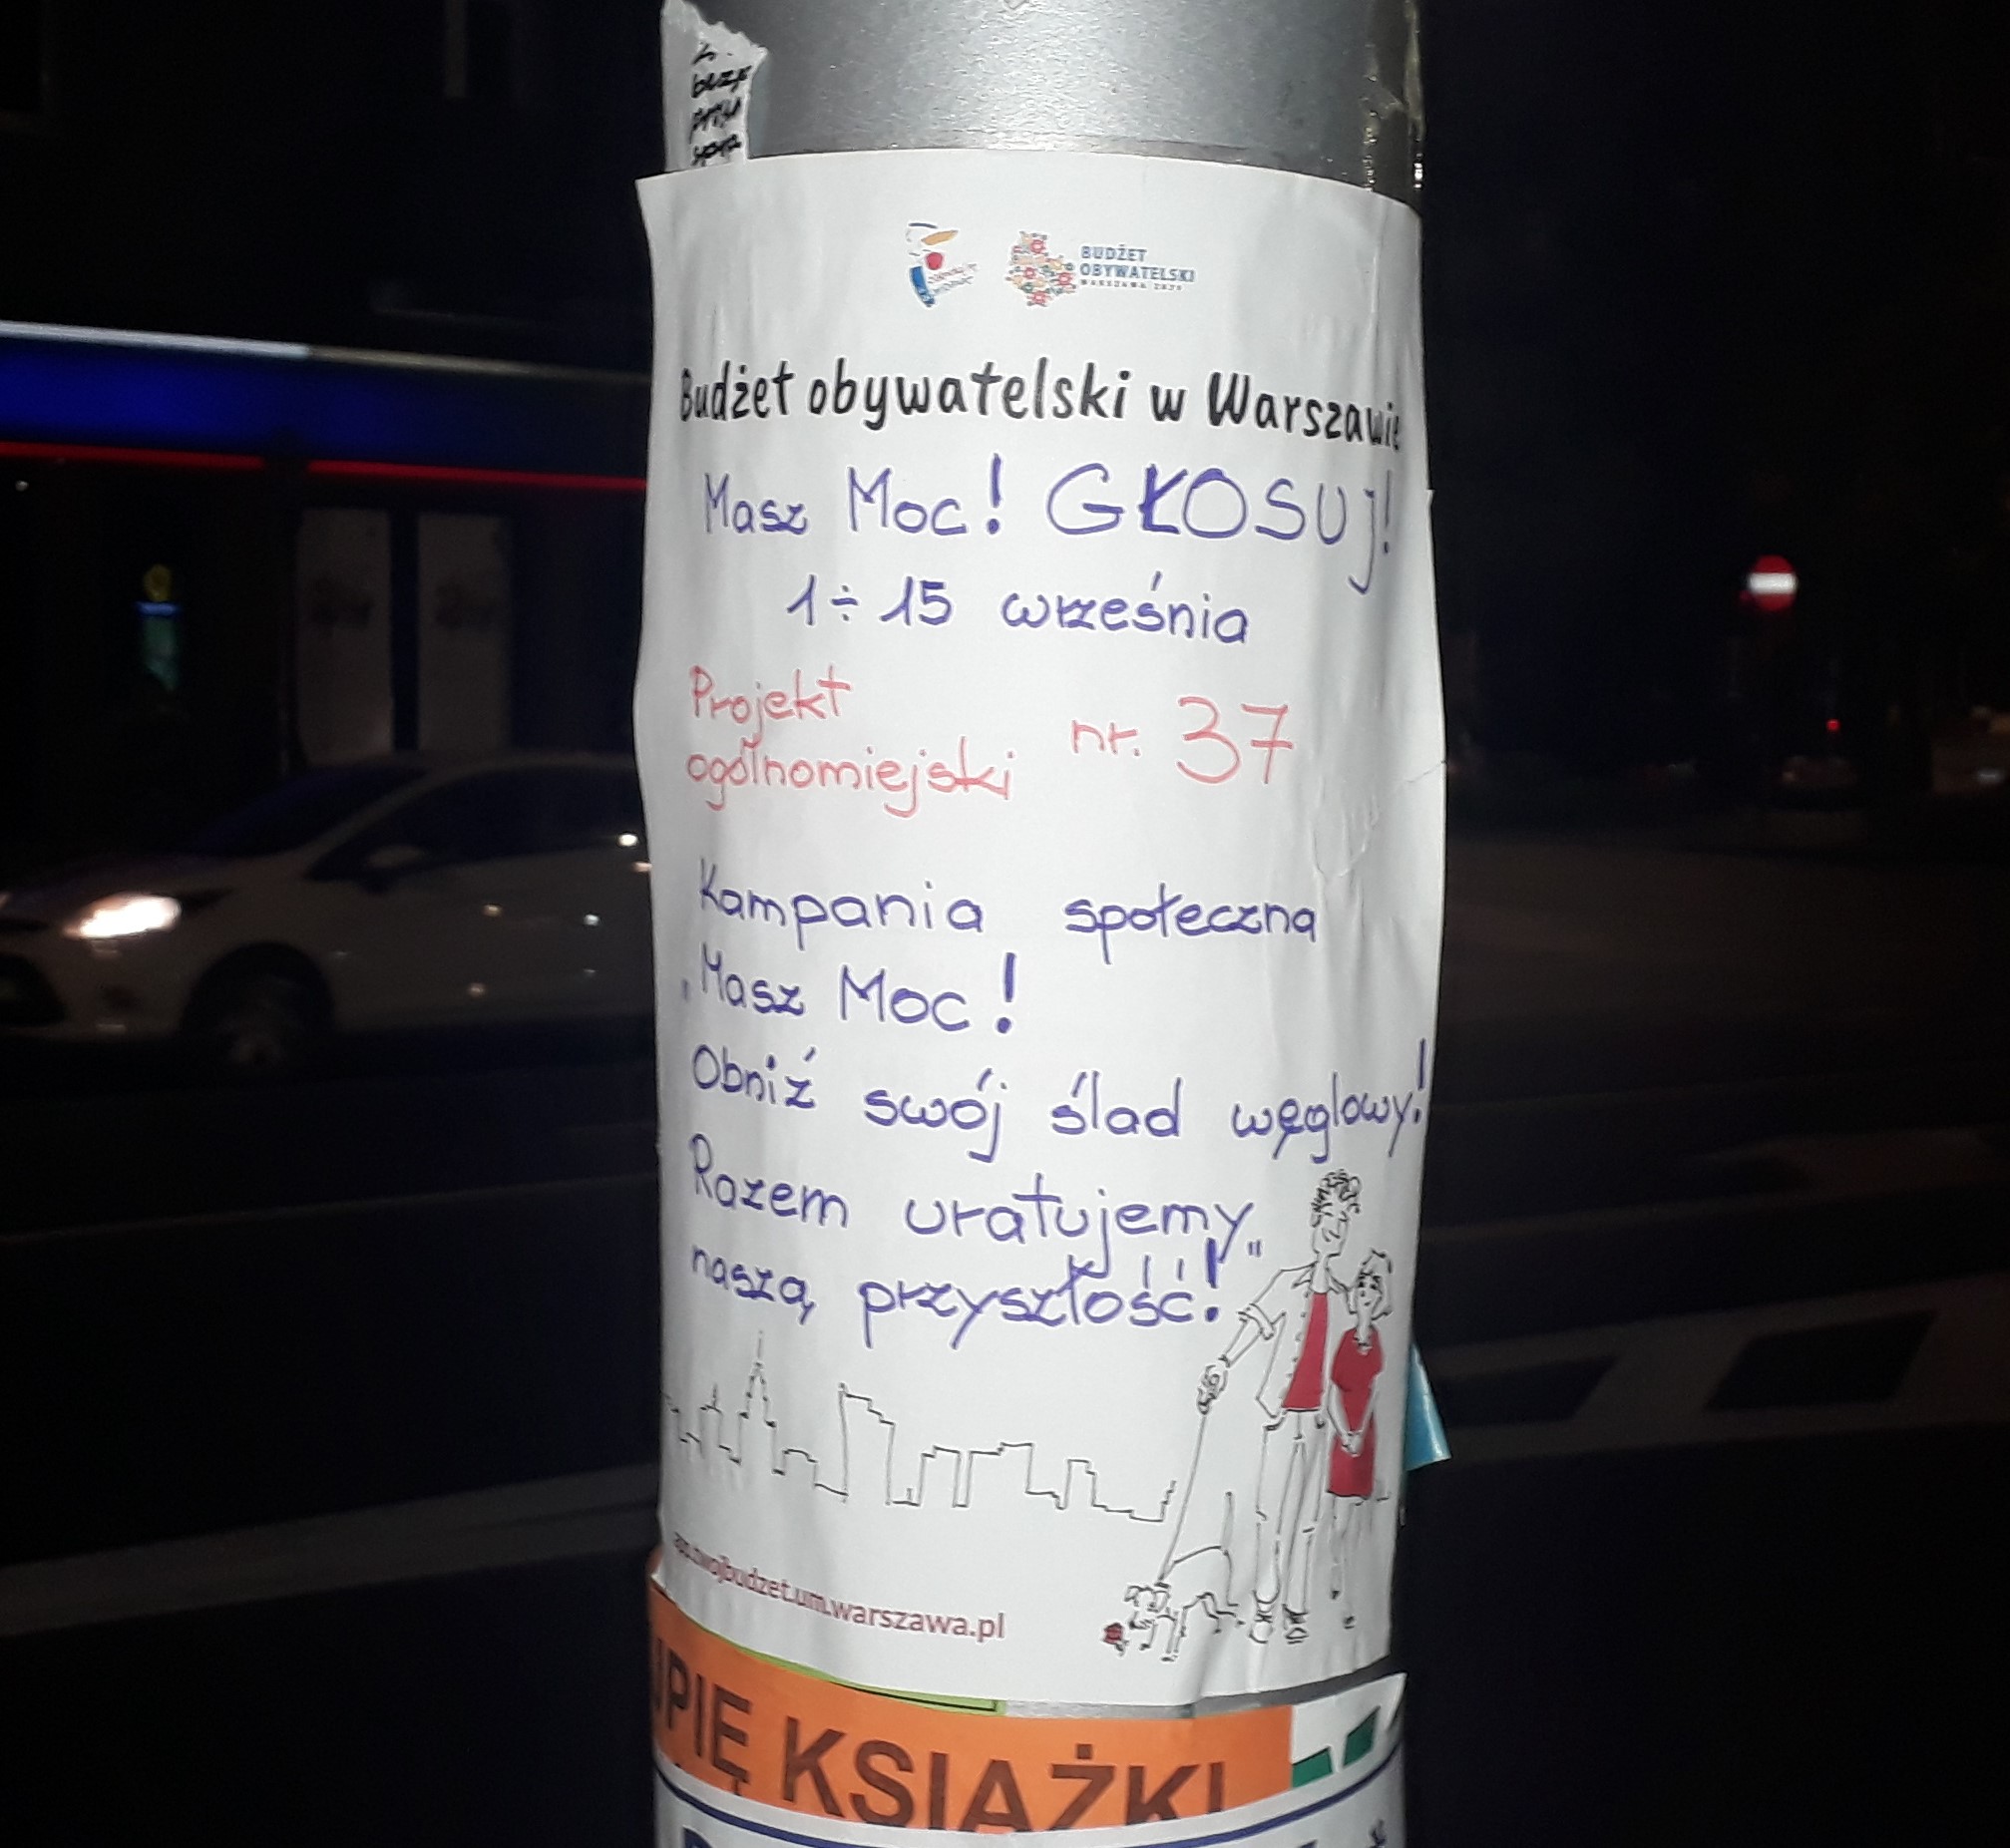 BUDŻET
OBYWATELSKI
Budżet obywatelski w Warszawie
Masz Moc! GŁOSUJ!
1÷15 września
Projekt
ogólnomiejski nr. 37
Kampania społeczna
„Masz Moc!
Obniż swój ślad węglowy!
Razem uratujemy
naszą przyszłość!"
twojbudzet.um.warszawa.pl
KSIĄŻKI